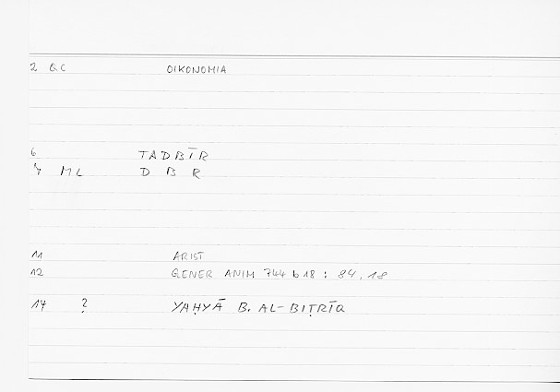 2 GC OIKONOMIA
6 TADBĪR
7 ML D B R
11 ARIST
12 GENER ANIM 744 b 18 : 84, 18
17 ? YAḤYĀ B. AL-BIṬRĪQ